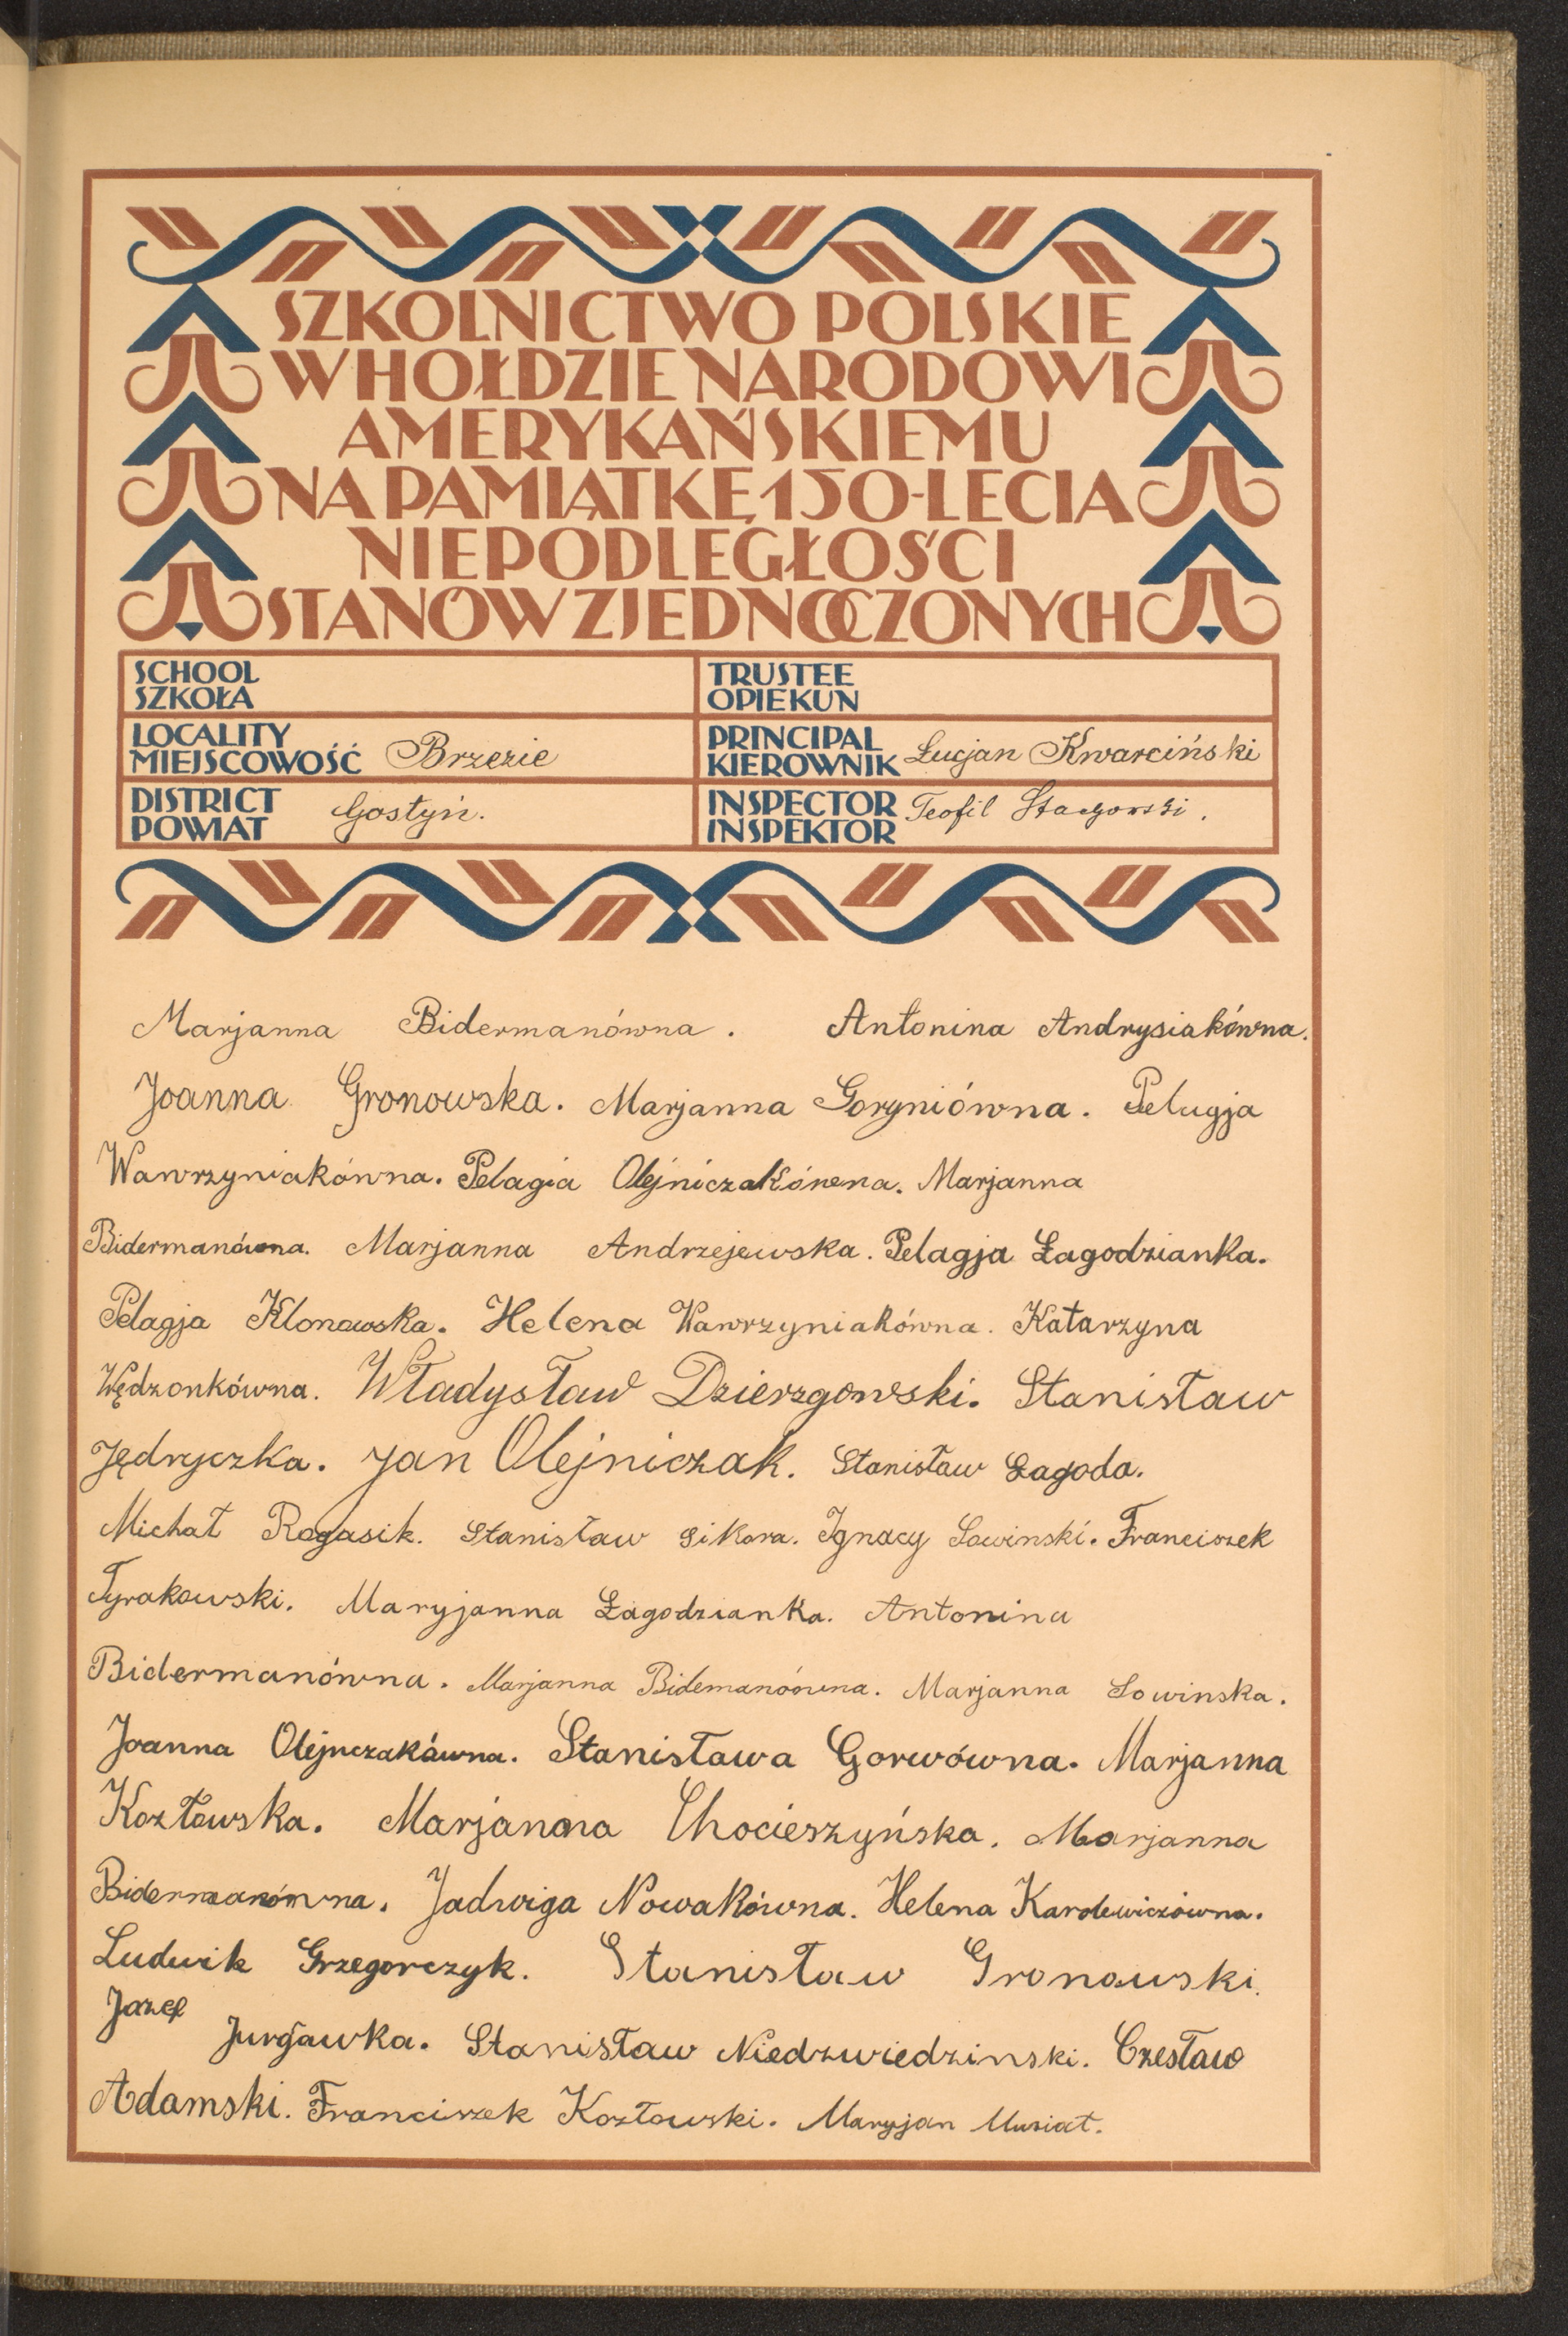 SZKOLNICTWO POLSKIE
W HOŁDZIE NARODOWI
AMERYKAŃSKIEMU
NA PAMIĄTKĘ 150-LECIA
NIEPODLEGŁOŚCI
STANÓW ZJEDNOCZONYCH
SCHOOL
SZKOŁA
TRUSTEE
OPIEKUN
LOCALITY
MIEJSCOWOŚĆ Brzezie
PRINCIPAL
KIEROWNIK Łucjan Kwarciński
DISTRICT
POWIAT Gostyń.
INSPECTOR
INSPEKTOR Teofil
Marjanna Bidermanówna. Antonina Andrysiakówna.
Joanna Gronowska. Marjanna Goryniówna. Pelugja
Wawrzyniakówna. Pelagia Olejniczakówna. Marjanna
Bidermanówna. Marjanna Andrzejewska. Pelagja Łagodzianka.
Pelagja Klonowska. Helena Wawrzyniakówna. Katarzyna
Wędzonkówna. Władysław Dzierzgowski. Stanisław
Jędryczka. Jan Olejniczak. Stanisław Łagoda.
Michał Rogasik. Stanisław Sikora. Ignacy Sowinski. Franciszek
Tyrakowski. Maryjanna Łagodzianka. Antonina
Bidermanówna. Marjanna Bidemanówna. Marjanna Sowinska.
Joanna Olejnczakówna. Stanisława Gorwówna. Marjanna
Kozłowska. Marjanna Chocieszyńska. Marjanna
Bidermanówna. Jadwiga Nowakówna. Helena Karolewiczówna.
Ludwik Grzegorczyk. Stanisław Gronowski.
Jozef Jurgawka. Stanisław Niedzwiedzinski. Czesław
Adamski. Franciszek Kozłowski. Maryjan Musiał.